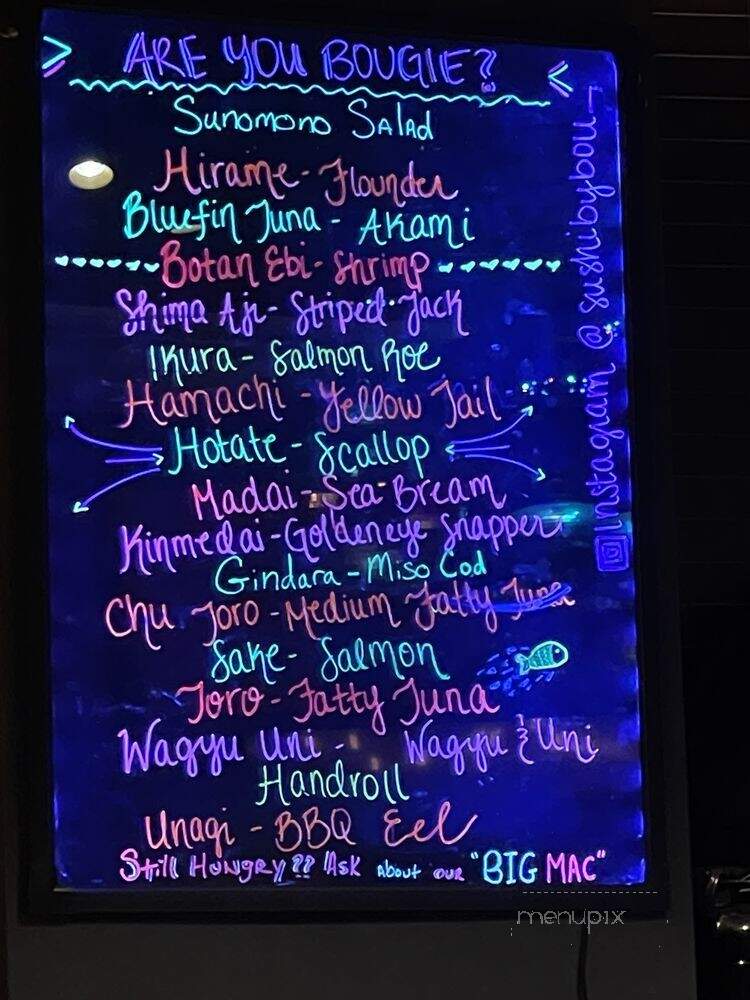 > ARE YOU BOUGIE? <
Sunomono Salad
Hirame - Flounder
Bluefin Tuna - Akami
Botan Ebi - Shrimp
Shima Aji - Striped Jack
Ikura - Salmon Roe
Hamachi - Yellow Tail
Hotate - Scallop
Madai - Sea Bream
Kinmedai - Goldeneye Snapper
Gindara - Miso Cod
Chu Toro - Medium Fatty Tuna
Sake - Salmon
Toro - Fatty Tuna
Wagyu Uni - Wagyu & Uni
Handroll
Unagi - BBQ Eel
Still Hungry?? Ask about our "BIG MAC"
Instagram @sushibybou
menupix